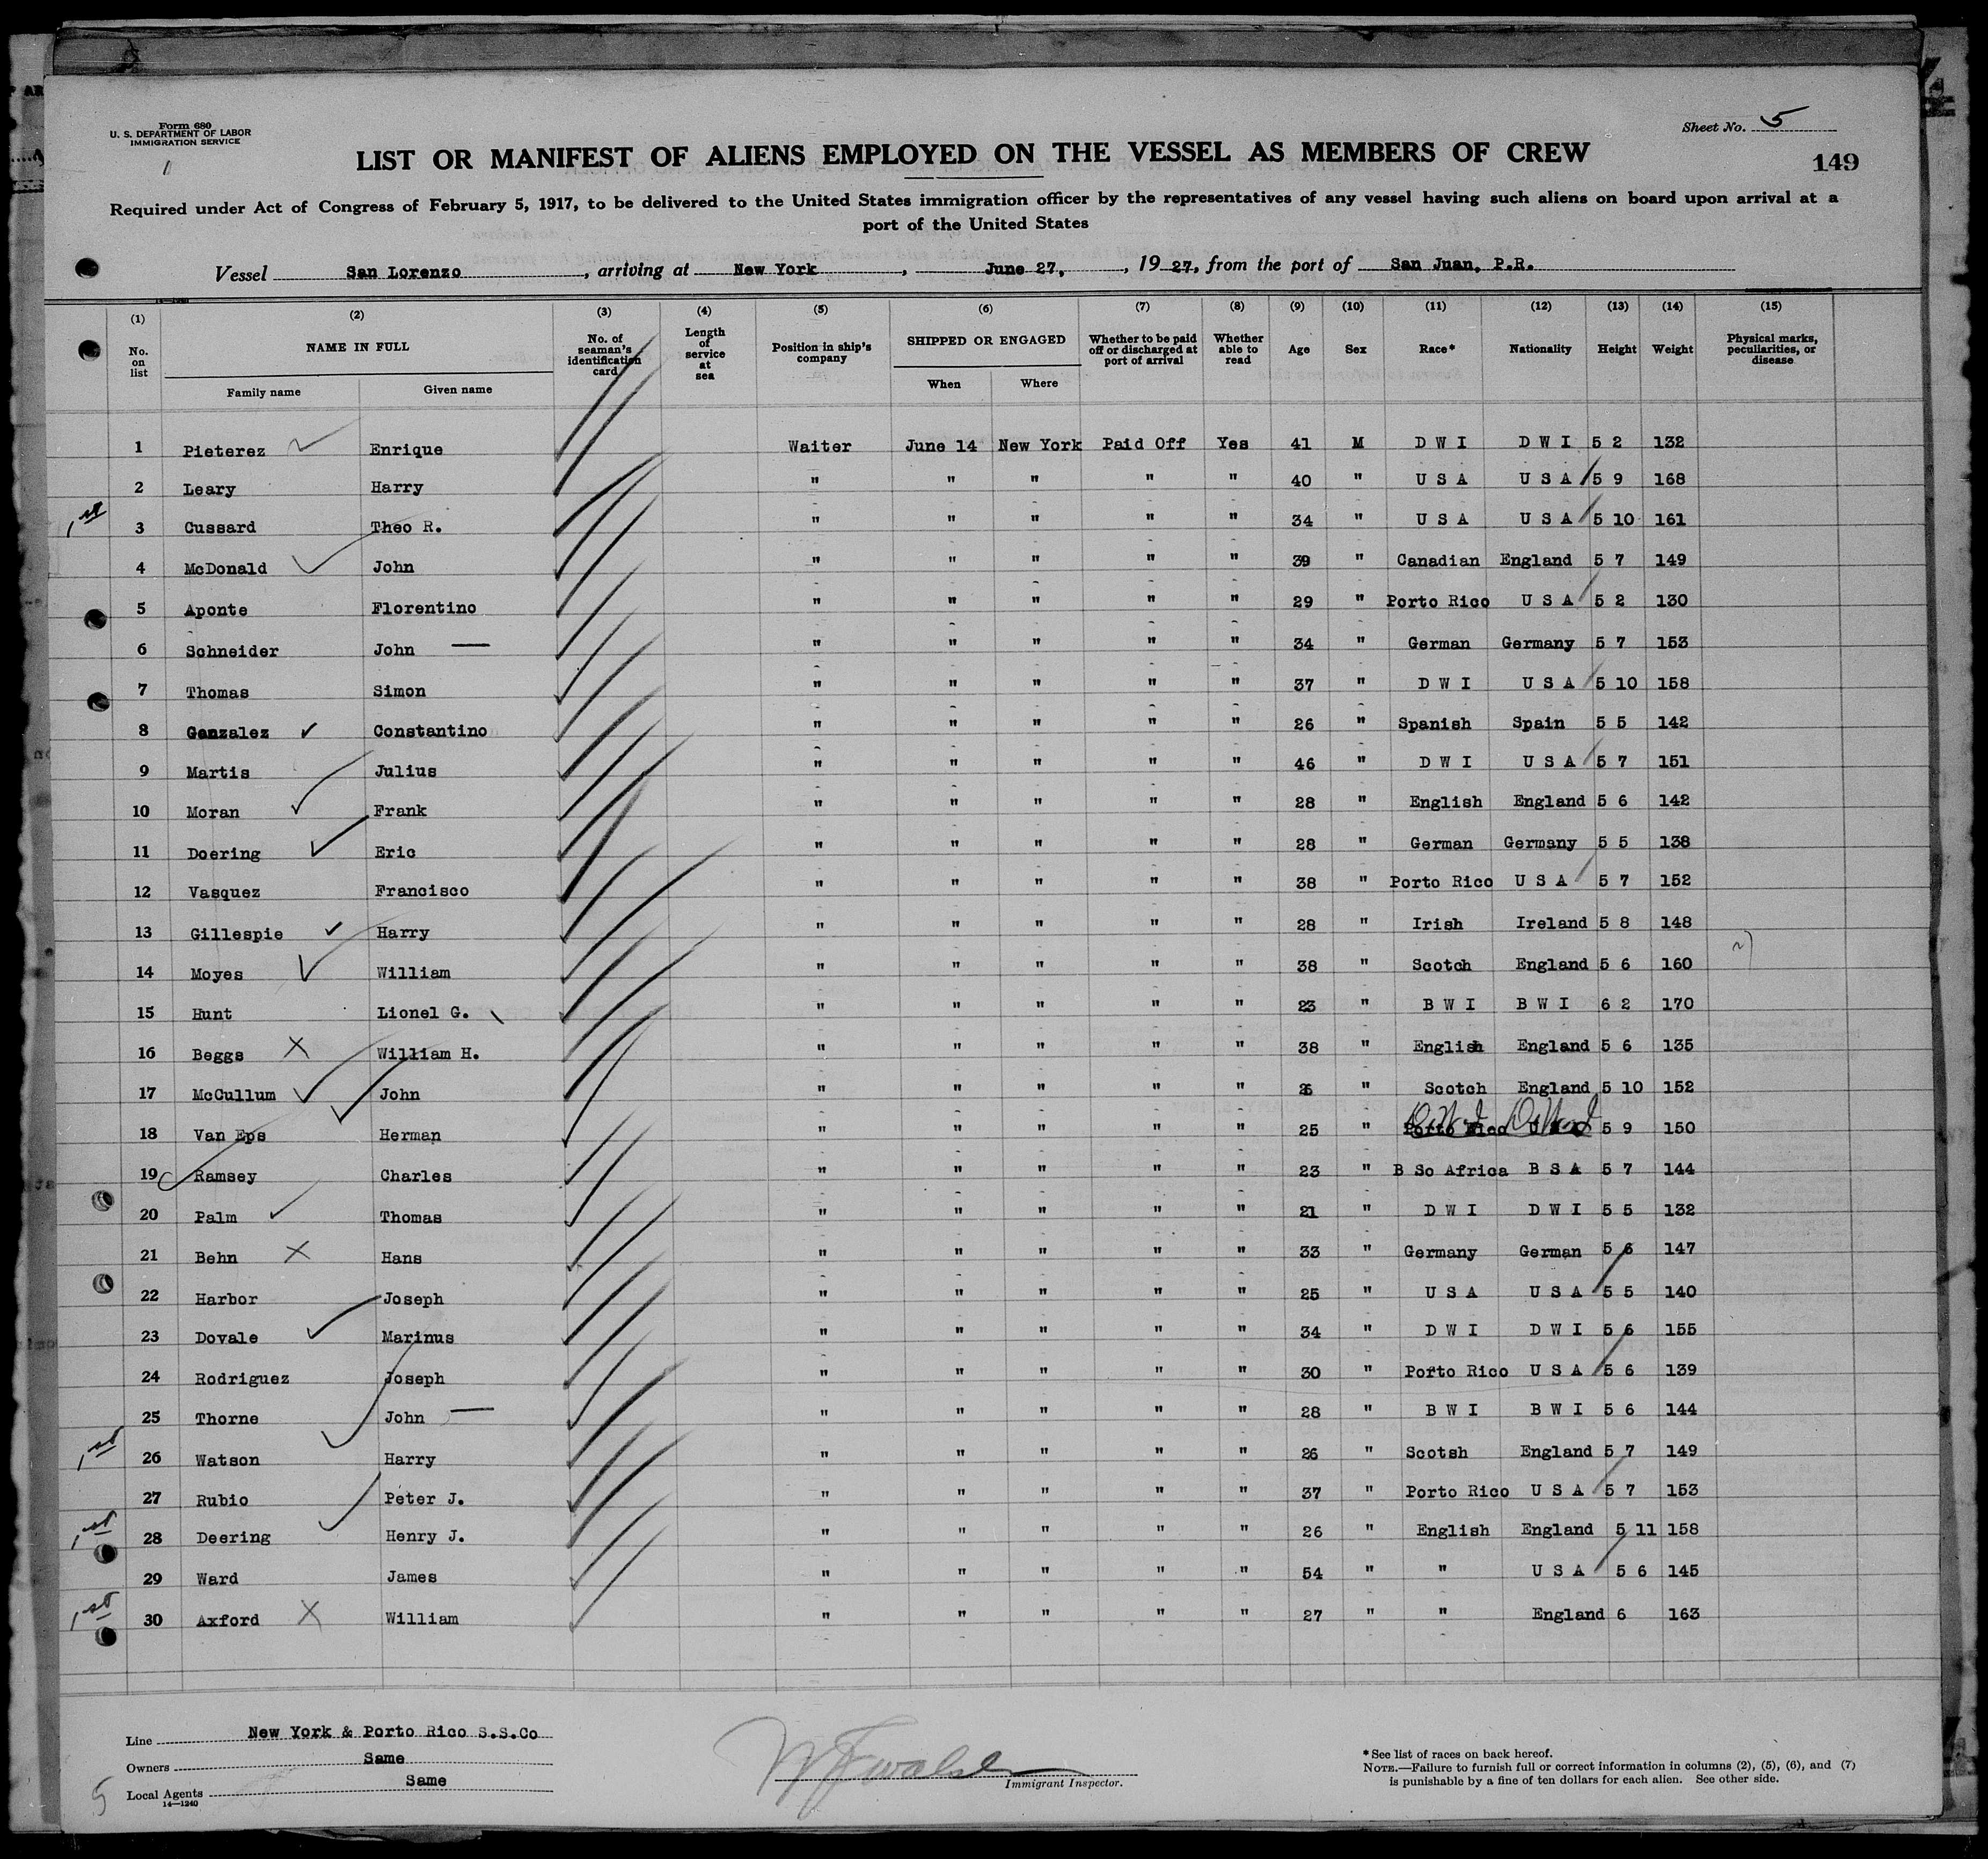 Form 680
U. S. DEPARTMENT OF LABOR
IMMIGRATION SERVICE
Sheet No. 5
LIST OR MANIFEST OF ALIENS EMPLOYED ON THE VESSEL AS MEMBERS OF CREW
149
Required under Act of Congress of February 5, 1917, to be delivered to the United States immigration officer by the representatives of any vessel having such aliens on board upon arrival at a
port of the United States
Vessel San Lorenzo, arriving at New York, June 27, 1927, from the port of San Juan, P.R.
(1) (2) (3) (4) (5) (6) (7) (8) (9) (10) (11) (12) (13) (14) (15)
No. on list NAME IN FULL Family name Given name No. of seaman's identification card Length of service at sea Position in ship's company SHIPPED OR ENGAGED When Where Whether to be paid off or discharged at port of arrival Whether able to read Age Sex Race* Nationality Height Weight Physical marks, peculiarities, or disease
1 Pieterez Enrique Waiter June 14 New York Paid Off Yes 41 M D W I D W I 5 2 132
2 Leary Harry " " " " " 40 " U S A U S A 5 9 168
1st 3 Cussard Theo R. " " " " " 34 " U S A U S A 5 10 161
4 McDonald John " " " " " 39 " Canadian England 5 7 149
5 Aponte Florentino " " " " " 29 " Porto Rico U S A 5 2 130
6 Schneider John " " " " " 34 " German Germany 5 7 153
7 Thomas Simon " " " " " 37 " D W I U S A 5 10 158
8 Gonzalez Constantino " " " " " 26 " Spanish Spain 5 5 142
9 Martis Julius " " " " " 46 " D W I U S A 5 7 151
10 Moran Frank " " " " " 28 " English England 5 6 142
11 Doering Eric " " " " " 28 " German Germany 5 5 138
12 Vasquez Francisco " " " " " 38 " Porto Rico U S A 5 7 152
13 Gillespie Harry " " " " " 28 " Irish Ireland 5 8 148
14 Moyes William " " " " " 38 " Scotch England 5 6 160
15 Hunt Lionel G. " " " " " 23 " B W I B W I 6 2 170
16 Beggs William H. " " " " " 38 " English England 5 6 135
17 McCullum John " " " " " 26 " Scotch England 5 10 152
18 Van Eps Herman " " " " " 25 " Porto Rico 5 9 150
19 Ramsey Charles " " " " " 23 " B So Africa B S A 5 7 144
20 Palm Thomas " " " " " 21 " D W I D W I 5 5 132
21 Behn Hans " " " " " 33 " Germany German 5 6 147
22 Harbor Joseph " " " " " 25 " U S A U S A 5 5 140
23 Dovale Marinus " " " " " 34 " D W I D W I 5 6 155
24 Rodriguez Joseph " " " " " 30 " Porto Rico U S A 5 6 139
25 Thorne John " " " " " 28 " B W I B W I 5 6 144
1st 26 Watson Harry " " " " " 26 " Scotsh England 5 7 149
27 Rubio Peter J. " " " " " 37 " Porto Rico U S A 5 7 153
1st 28 Deering Henry J. " " " " " 26 " English England 5 11 158
29 Ward James " " " " " 54 " " U S A 5 6 145
1st 30 Axford William " " " " " 27 " " England 6 163
Line New York & Porto Rico S.S.Co
Owners Same
Local Agents Same
14—1240
Immigrant Inspector.
*See list of races on back hereof.
NOTE.—Failure to furnish full or correct information in columns (2), (5), (6), and (7)
is punishable by a fine of ten dollars for each alien. See other side.